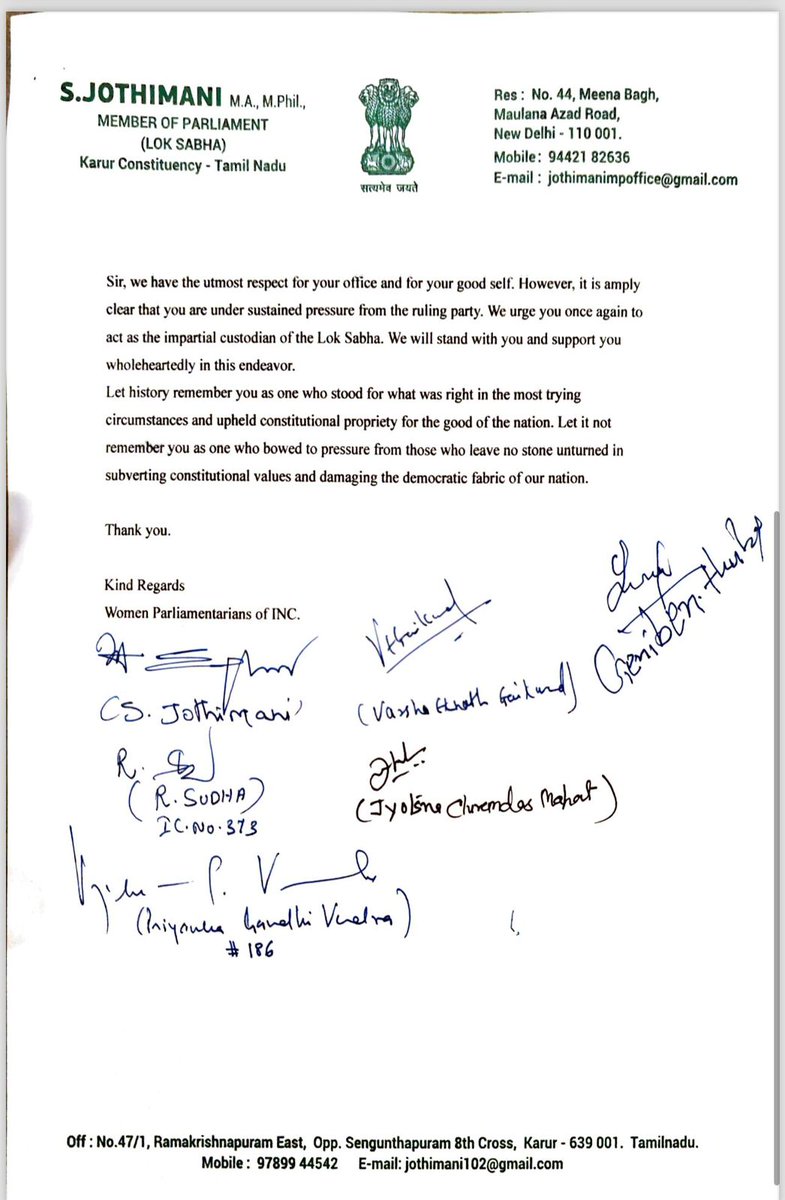 S.JOTHIMANI M.A., M.Phil.,
MEMBER OF PARLIAMENT
(LOK SABHA)
Karur Constituency - Tamil Nadu
सत्यमेव जयते
Res : No. 44, Meena Bagh,
Maulana Azad Road,
New Delhi - 110 001.
Mobile : 94421 82636
E-mail : jothimanimpoffice@gmail.com
Sir, we have the utmost respect for your office and for your good self. However, it is amply
clear that you are under sustained pressure from the ruling party. We urge you once again to
act as the impartial custodian of the Lok Sabha. We will stand with you and support you
wholeheartedly in this endeavor.
Let history remember you as one who stood for what was right in the most trying
circumstances and upheld constitutional propriety for the good of the nation. Let it not
remember you as one who bowed to pressure from those who leave no stone unturned in
subverting constitutional values and damaging the democratic fabric of our nation.
Thank you.
Kind Regards
Women Parliamentarians of INC.
(S. Jothimani)
(Varsha Eknath Gaikwad)
R.
(R. SUDHA)
IC.No.373
(Jyotsna Charandas Mahant)
(Priyanka Gandhi Vadra)
# 186
Off : No.47/1, Ramakrishnapuram East, Opp. Sengunthapuram 8th Cross, Karur - 639 001. Tamilnadu.
Mobile : 97899 44542 E-mail: jothimani102@gmail.com